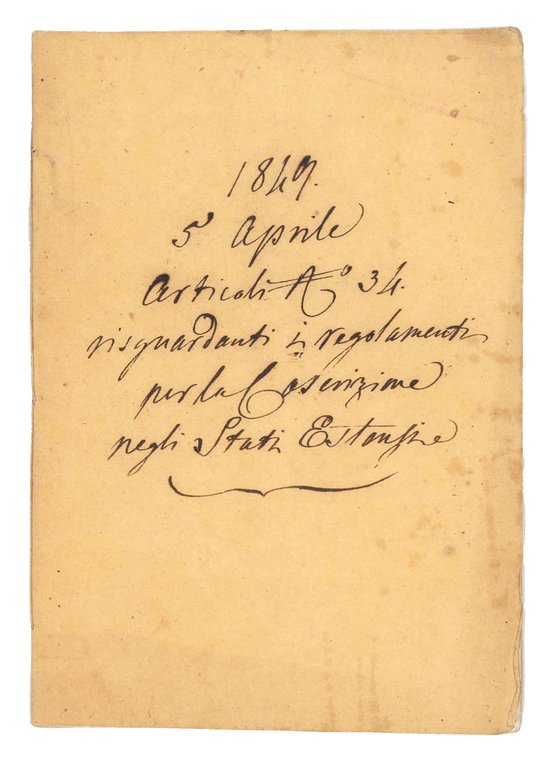 1849.
5 Aprile
Articoli N° 34.
risguardanti i regolamenti
per la Coscrizione
negli Stati Estensi